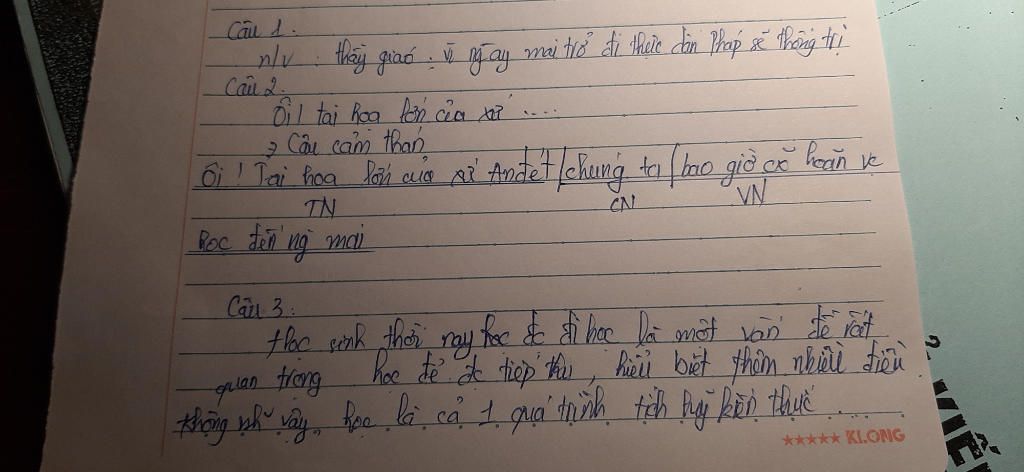 Câu 1.
n/v : thầy giaó : vì ngay mai trở đi thực dân Pháp sẽ thống trị
Câu 2.
Ôi! tai họa lớn của xứ ....
→ Câu cảm thán
Ôi! Tai hoa lớn của xứ Andét / chúng ta / bao giờ cũ hoãn vc
TN CN VN
học đến ng mai
Câu 3:
Học sinh thời nay học đc đi học là một vấn đề rất
quan trọng học để đc tiếp thu, hiểu biết thêm nhiều điều
không nh vậy, học là cả 1 quá trình tích luỹ kiến thức
★★★★★ KLONG